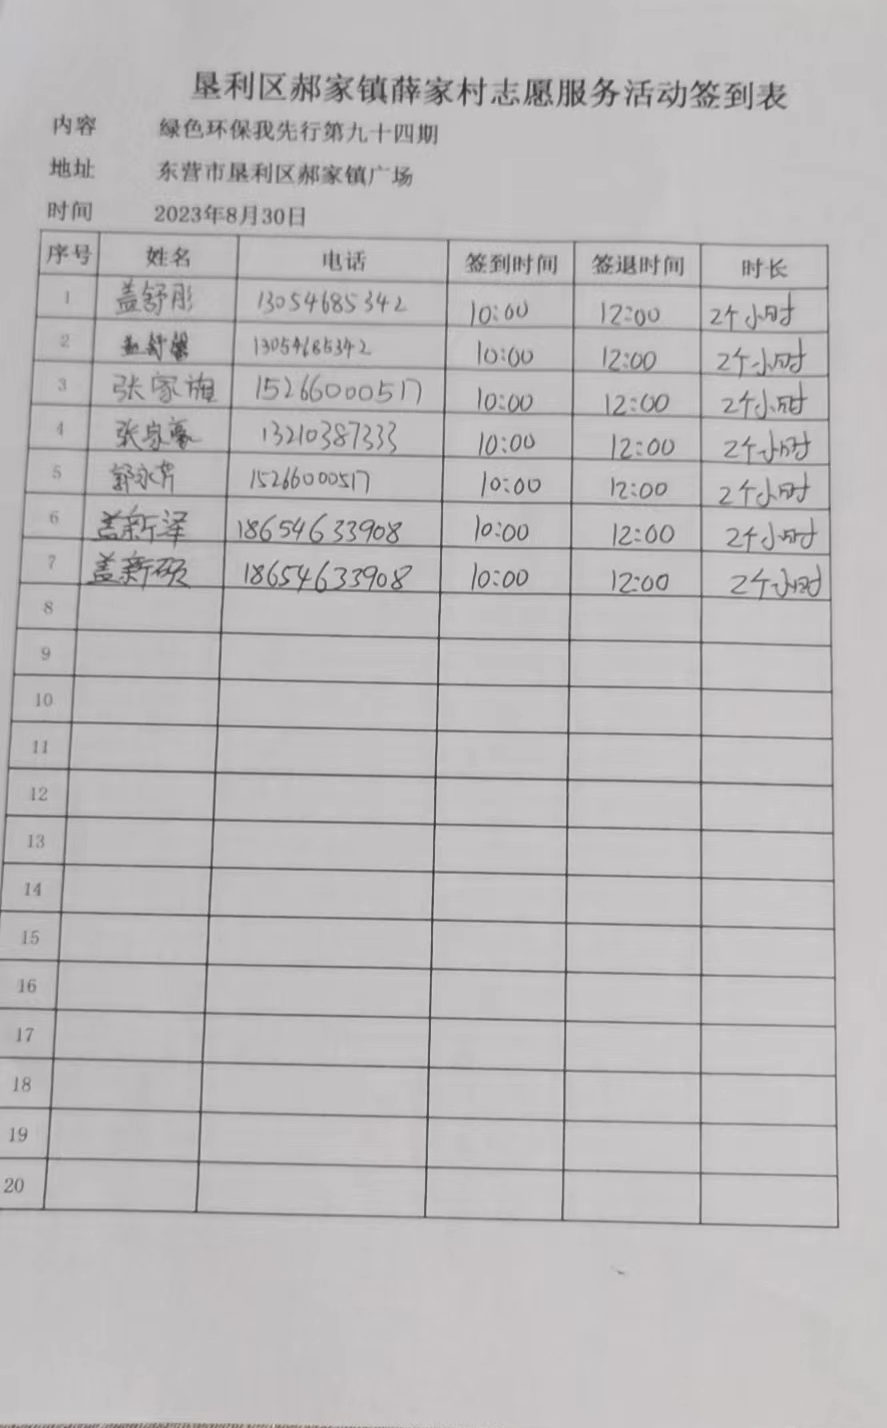 垦利区郝家镇薛家村志愿服务活动签到表
内容 绿色环保我先行第九十四期
地址 东营市垦利区郝家镇广场
时间 2023年8月30日
序号 姓名 电话 签到时间 签退时间 时长
1 盖舒彤 13054685342 10:00 12:00 2个小时
2 13054685342 10:00 12:00 2个小时
3 张家旗 15266000517 10:00 12:00 2个小时
4 张家豪 13210387333 10:00 12:00 2个小时
5 15266000517 10:00 12:00 2个小时
6 盖新泽 18654633908 10:00 12:00 2个小时
7 盖新硕 18654633908 10:00 12:00 2个小时
8
9
10
11
12
13
14
15
16
17
18
19
20